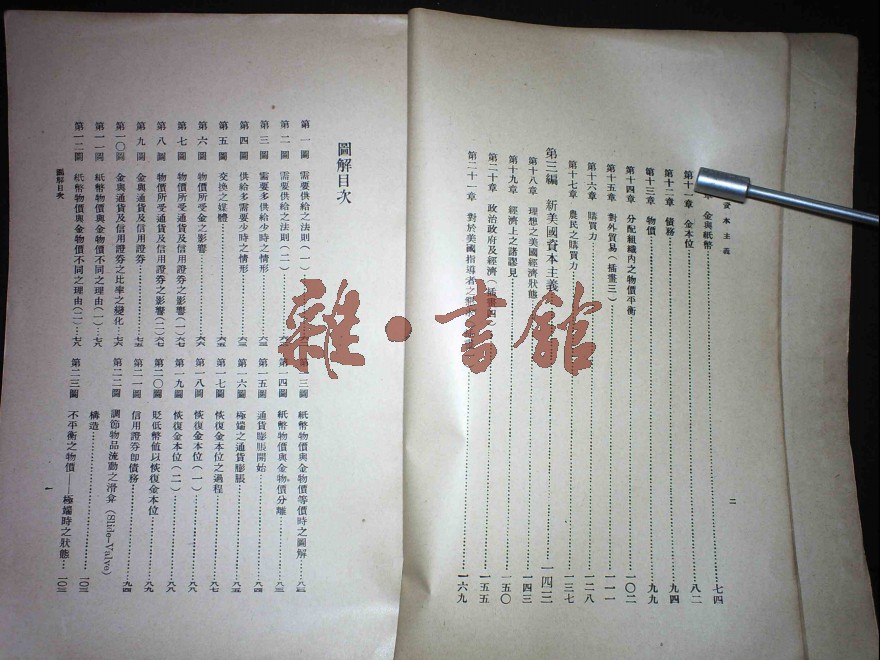 資本主義
二
金與紙幣……七四
第十一章 金本位……八二
第十二章 債務……九四
第十三章 物價……九九
第十四章 分配組織內之物價平衡……一〇二
第十五章 對外貿易(插畫三)……一一一
第十六章 購買力……一二八
第十七章 農民之購買力……一三七
第三編 新美國資本主義……一四三
第十八章 理想之美國經濟狀態……一四三
第十九章 經濟上之諸謬見……一五〇
第二十章 政治政府及經濟(插畫四)……一五五
第二十一章 對於美國指導者之……一六九
圖解目次
第一圖 需要供給之法則(一)
第二圖 需要供給之法則(二)
第三圖 需要多供給少時之情形……六三
第四圖 供給多需要少時之情形……六三
第五圖 交換之媒體……六五
第六圖 物價所受金之影響……六六
第七圖 物價所受通貨及信用證券之影響(一)六七
第八圖 物價所受通貨及信用證券之影響(二)六七
第九圖 金與通貨及信用證券……七五
第一〇圖 金與通貨及信用證券之比率之變化…七六
第一一圖 紙幣物價與金物價不同之理由(一)…七八
第一二圖 紙幣物價與金物價不同之理由(二)…七八
三圖 紙幣物價與金物價等價時之圖解……八三
第一四圖 紙幣物價與金物價分離……八三
第一五圖 通貨膨脹開始……八四
第一六圖 極端之通貨膨脹……八五
第一七圖 恢復金本位之過程……八七
第一八圖 恢復金本位(一)……八八
第一九圖 恢復金本位(二)……八八
第二〇圖 貶低幣值以恢復金本位……八九
第二一圖 信用證券卽債務……九四
第二二圖 調節物品流動之滑弇(Slide-Valve)
構造……一〇三
第二三圖 不平衡之物價——極端時之狀態…一〇三
圖解目次
一
雜·書館